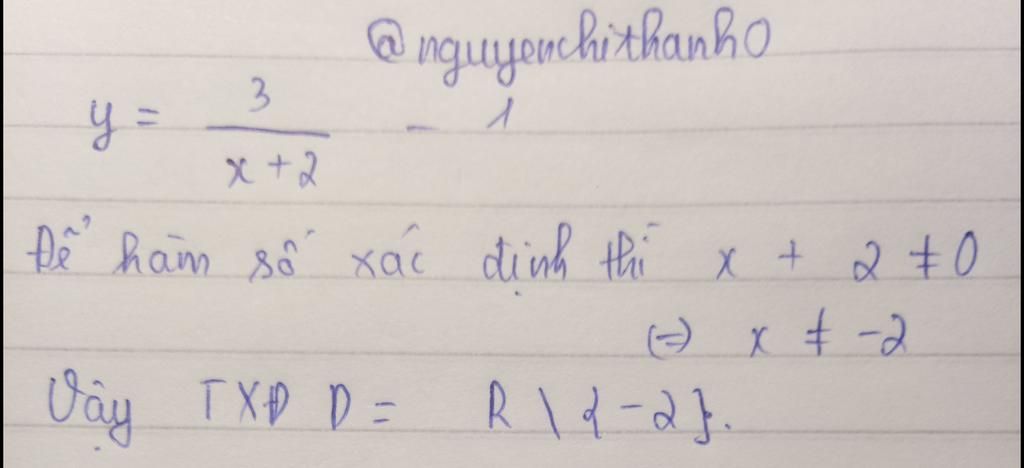 @nguyenchithanh0
y = 3/(x + 2) - 1
Để hàm số xác định thì x + 2 ≠ 0
(=) x ≠ -2
Vậy TXĐ D = R \ {-2}.